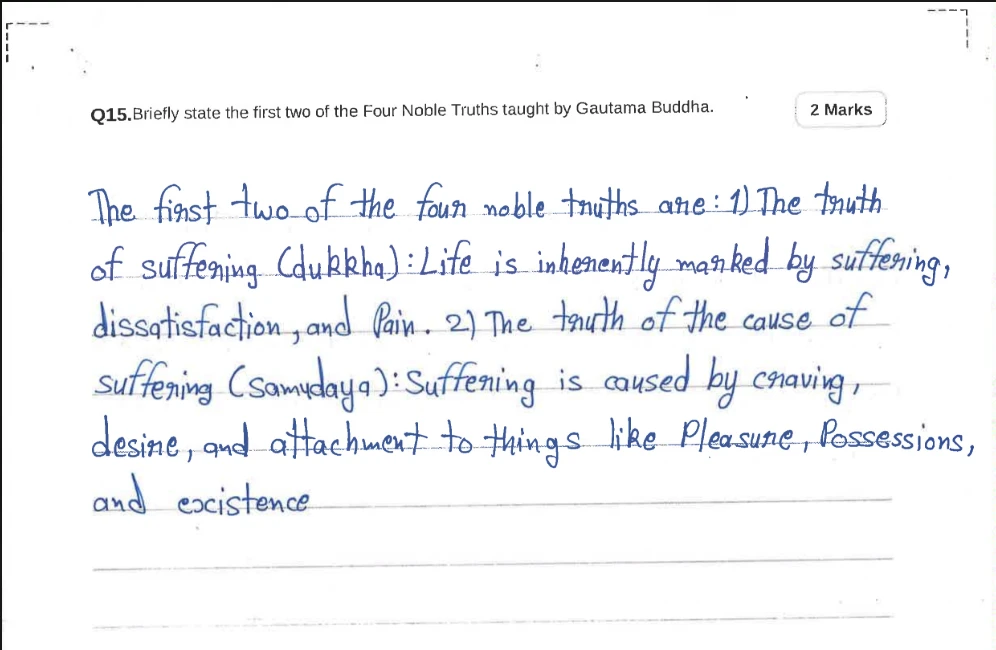 Q15.Briefly state the first two of the Four Noble Truths taught by Gautama Buddha.
2 Marks
The first two of the four noble truths are: 1) The truth
of suffering (dukkha): Life is inherently marked by suffering,
dissatisfaction, and Pain. 2) The truth of the cause of
suffering (samudaya): Suffering is caused by craving,
desire, and attachment to things like Pleasure, Possessions,
and existence